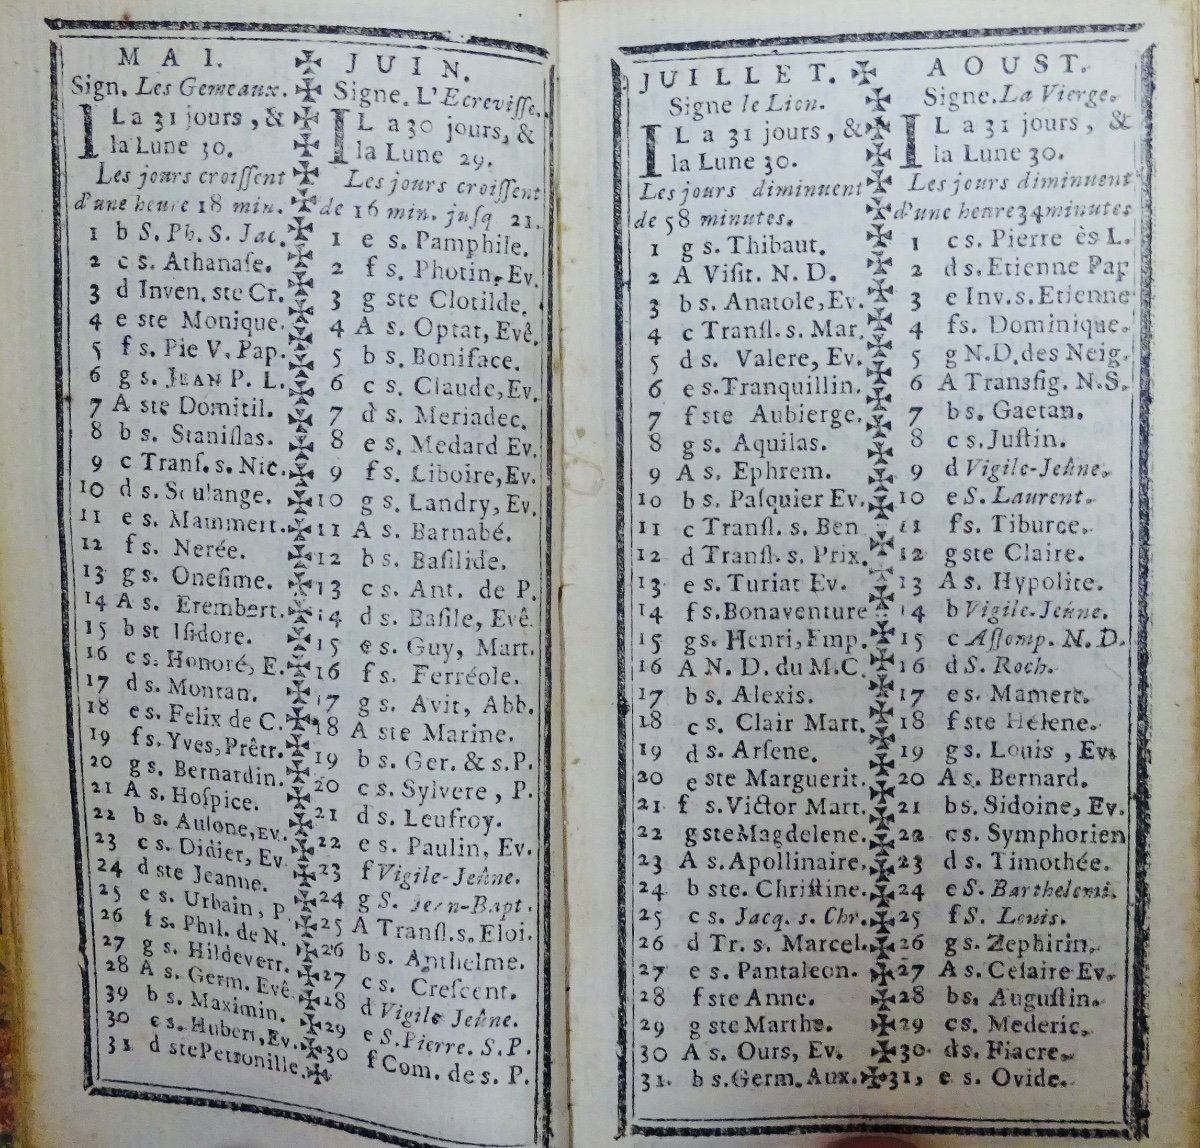 MAI.
Sign. Les Gemeaux.
IL a 31 jours, &
la Lune 30.
Les jours croiſſent
d'une heure 18 min.
1 b S. Ph. S. Jac.
2 c s. Athanaſe.
3 d Inven. ste Cr.
4 e ste Monique.
5 f s. Pie V. Pap.
6 g s. JEAN P. L.
7 A ste Domitil.
8 b s. Staniſlas.
9 c Tranſ. s. Nic.
10 d s. Soulange.
11 e s. Mammert.
12 f s. Nerée.
13 g s. Oneſime.
14 A s. Erembert.
15 b st Iſidore.
16 c s. Honoré, E.
17 d s. Montan.
18 e s. Felix de C.
19 f s. Yves, Prêtr.
20 g s. Bernardin.
21 A s. Hoſpice.
22 b s. Aulone, Ev.
23 c s. Didier, Ev.
24 d ste Jeanne.
25 e s. Urbain, P.
26 f s. Phil. de N.
27 g s. Hildeverr.
28 A s. Germ. Evê.
39 b s. Maximin.
30 c s. Hubert, Ev.
31 d ste Petronille.
JUIN.
Signe. L'Ecreviſſe.
IL a 30 jours, &
la Lune 29.
Les jours croiſſent
de 16 min. juſq 21.
1 e s. Pamphile.
2 f s. Photin, Ev.
3 g ste Clotilde.
4 A s. Optat, Evê.
5 b s. Boniface.
6 c s. Claude, Ev.
7 d s. Meriadec.
8 e s. Medard Ev.
9 f s. Liboire, Ev.
10 g s. Landry, Ev.
11 A s. Barnabé.
12 b s. Baſilide.
13 c s. Ant. de P.
14 d s. Baſile, Evê.
15 e s. Guy, Mart.
16 f s. Ferréole.
17 g s. Avit, Abb.
18 A ste Marine.
19 b s. Ger. & s. P.
20 c s. Sylvere, P.
21 d s. Leufroy.
22 e s. Paulin, Ev.
23 f Vigile-Jeûne.
24 g S. Jean-Bapt.
25 A Tranſl. s. Eloi.
26 b s. Anthelme.
27 c s. Creſcent.
28 d Vigile Jeûne.
29 e S. Pierre. S. P.
30 f Com. de s. P.
JUILLET.
Signe le Lion.
IL a 31 jours, &
la Lune 30.
Les jours diminuent
de 58 minutes.
1 g s. Thibaut.
2 A Viſit. N. D.
3 b s. Anatole, Ev.
4 c Tranſl. s. Mar.
5 d s. Valere, Ev.
6 e s. Tranquillin.
7 f ste Aubierge.
8 g s. Aquilas.
9 A s. Ephrem.
10 b s. Paſquier Ev.
11 c Tranſl. s. Ben
12 d Tranſl. s. Prix.
13 e s. Turiat Ev.
14 f s. Bonaventure
15 g s. Henri, Emp.
16 A N. D. du M. C.
17 b s. Alexis.
18 c s. Clair Mart.
19 d s. Arſene.
20 e ste Marguerit.
21 f s. Victor Mart.
22 g ste Magdelene.
23 A s. Apollinaire,
24 b ste. Chriſtine.
25 c s. Jacq. s. Chr.
26 d Tr. s. Marcel.
27 e s. Pantaleon.
28 f ste Anne.
29 g ste Marthe.
30 A s. Ours, Ev.
31. b s. Germ. Aux.
AOUST.
Signe. La Vierge.
IL a 31 jours, &
la Lune 30.
Les jours diminuent
d'une heure 34 minutes
1 c s. Pierre ès L.
2 d s. Etienne Pap
3 e Inv. s. Etienne
4 f s. Dominique.
5 g N. D. des Neig.
6 A Transfig. N. S.
7 b s. Gaetan.
8 c s. Juſtin.
9 d Vigile-Jeûne.
10 e S. Laurent.
11 f s. Tiburce.
12 g ste Claire.
13 A s. Hypolite.
14 b Vigile. Jeûne.
15 c Aſſomp. N. D.
16 d S. Roch.
17 e s. Mamert.
18 f ste Hélene.
19 g s. Louis, Ev.
20 A s. Bernard.
21 b s. Sidoine, Ev.
22 c s. Symphorien
23 d s. Timothée.
24 e S. Barthelemi.
25 f S. Louis.
26 g s. Zephirin.
27 A s. Ceſaire Ev.
28 b s. Auguſtin.
29 c s. Mederic.
30. d s. Fiacre.
31, e s. Ovide.